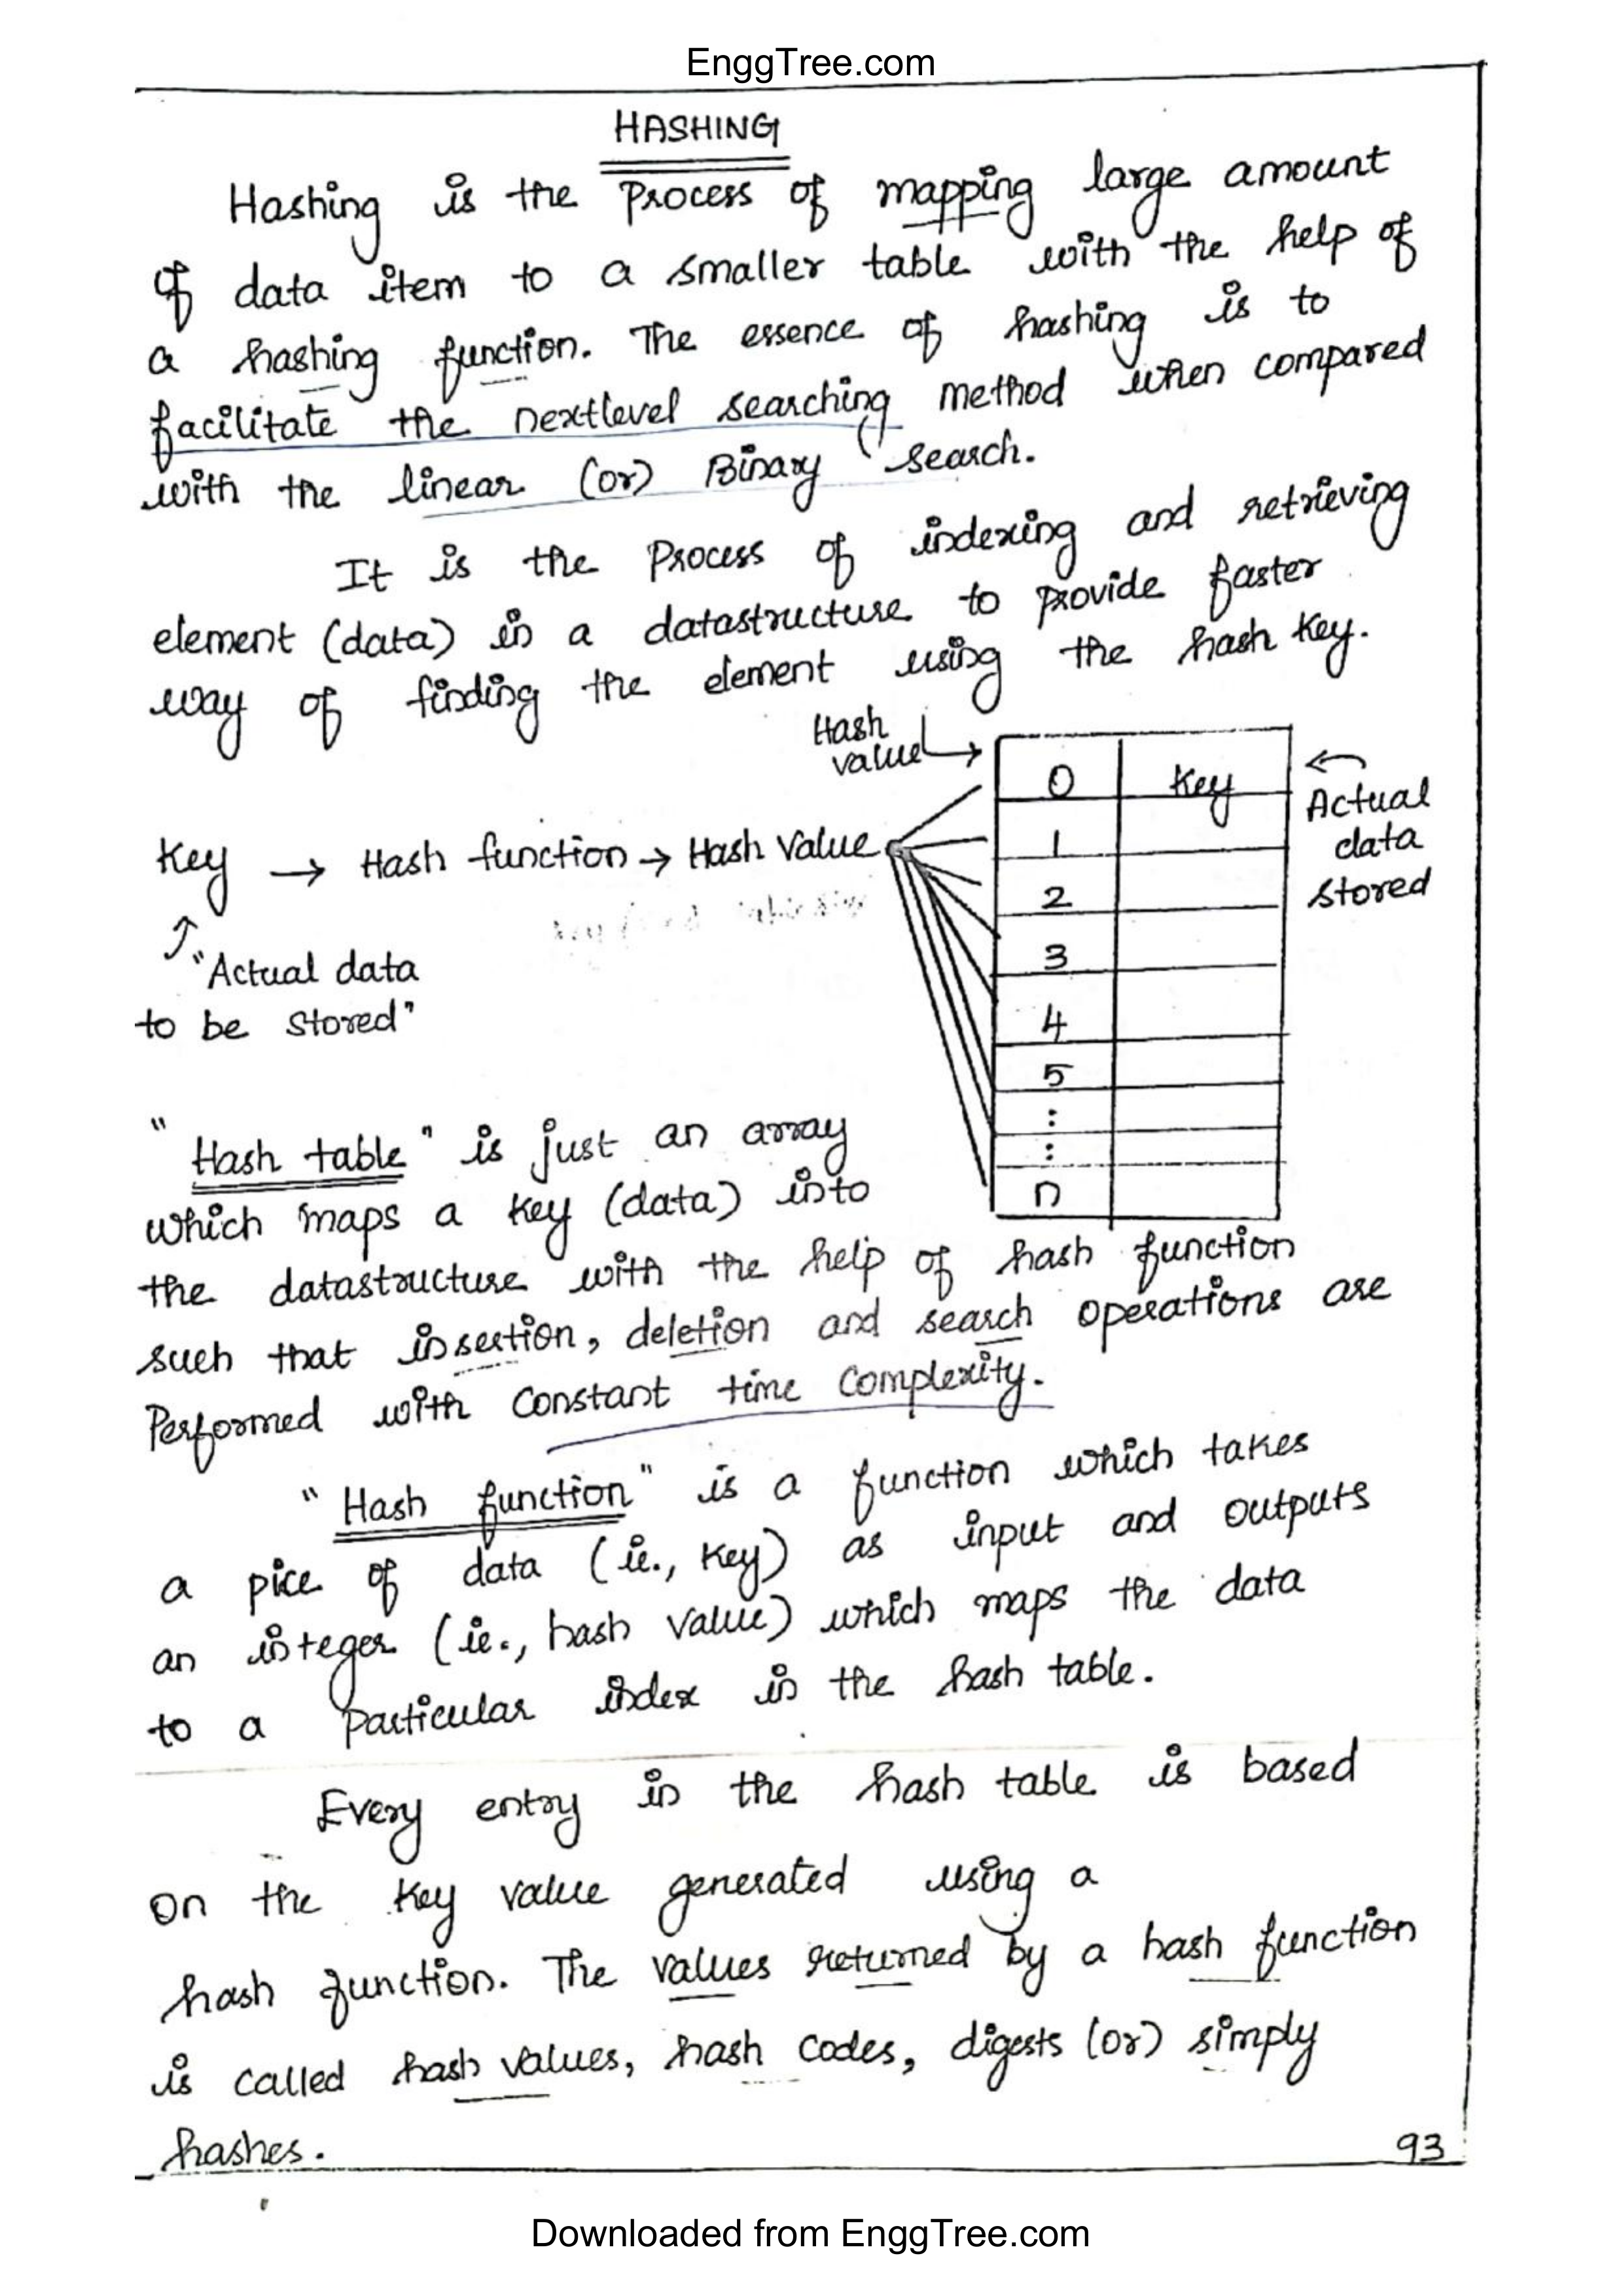 EnggTree.com
HASHING
Hashing is the Process of mapping large amount
of data item to a smaller table with the help of
a hashing function. The essence of hashing is to
facilitate the nextlevel searching method when compared
with the linear (or) Binary search.
It is the Process of indexing and retrieving
element (data) in a datastructure to provide faster
way of finding the element using the hash key.
Hash
value
0 Key
1
2
3
4
5
:
:
n
Actual
data
stored
Key → Hash function → Hash Value
"Actual data
to be stored"
"Hash table" is just an array
which maps a key (data) into
the datastructure with the help of hash function
such that insertion, deletion and search operations are
Performed with constant time complexity.
"Hash function" is a function which takes
a pice of data (ie., key) as input and outputs
an integer (ie., hash value) which maps the data
to a particular index in the hash table.
Every entry in the hash table is based
on the key value generated using a
hash function. The values returned by a hash function
is called hash values, hash codes, digests (or) simply
hashes.
93
Downloaded from EnggTree.com